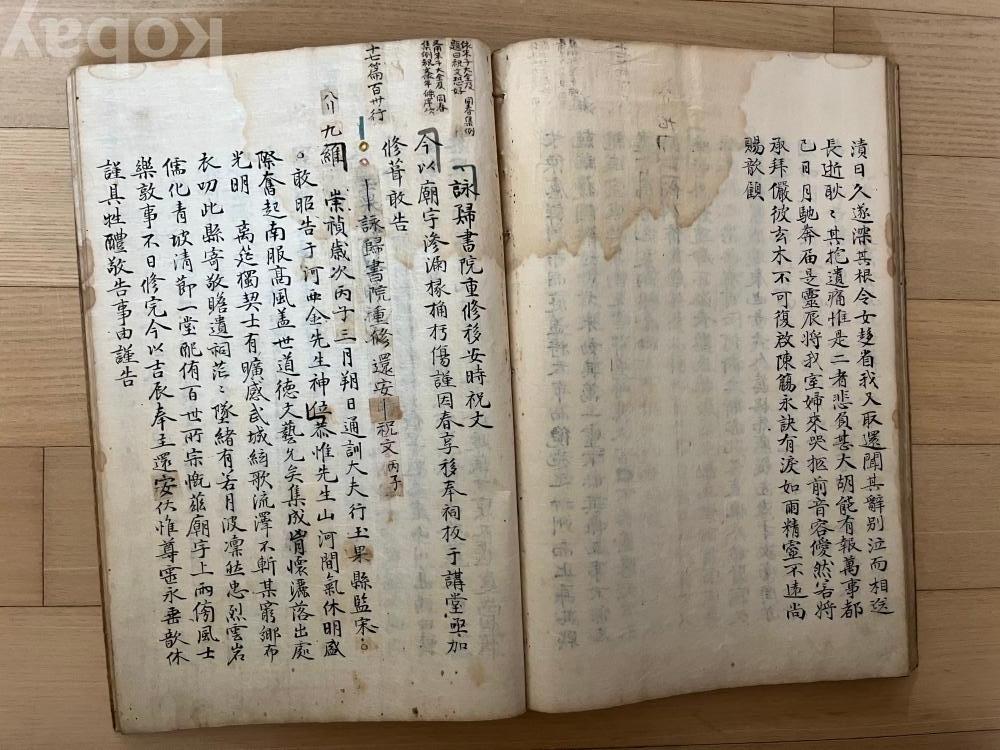 漬日久遂深其根令女趍省我入取還聞其辭別泣而相送
長逝耿〻其抱遺痛惟是二者悲負甚大胡能有報萬事都
已日月馳奔届是靈辰將我室婦來哭柩前音容僾然若將
承拜儼彼玄木不可復啟陳觴永訣有淚如雨精靈不遠尚
賜歆顧
依朱子大全及同春集例
題曰祝文恐好
十七篇百卅行
詠歸書院重修移安時祝文
今以廟宇滲漏椽桷朽傷謹因春享移奉祠板于講堂亟加
修葺敢告
詠歸書院重修還安祝文丙子
九維崇禎歲次丙子三月朔日通訓大夫行玉果縣監宋
敢昭告于河西金先生神位恭惟先生山河間氣休明盛
際奮起南服高風盖世道德文藝允矣集成胷懷灑落出處
光明 离筵獨契士有曠感武城絃歌流澤不斬某窮鄉布
衣叨此縣寄敬瞻遺祠茫〻墜緒有若月波凛然忠烈雲岩
儒化青坡清節一堂配侑百世所宗慨玆廟宇上雨傍風士
樂敦事不日修完今以吉辰奉主還安伏惟尊靈永垂歆休
謹具牲醴敬告事由謹告
kobay